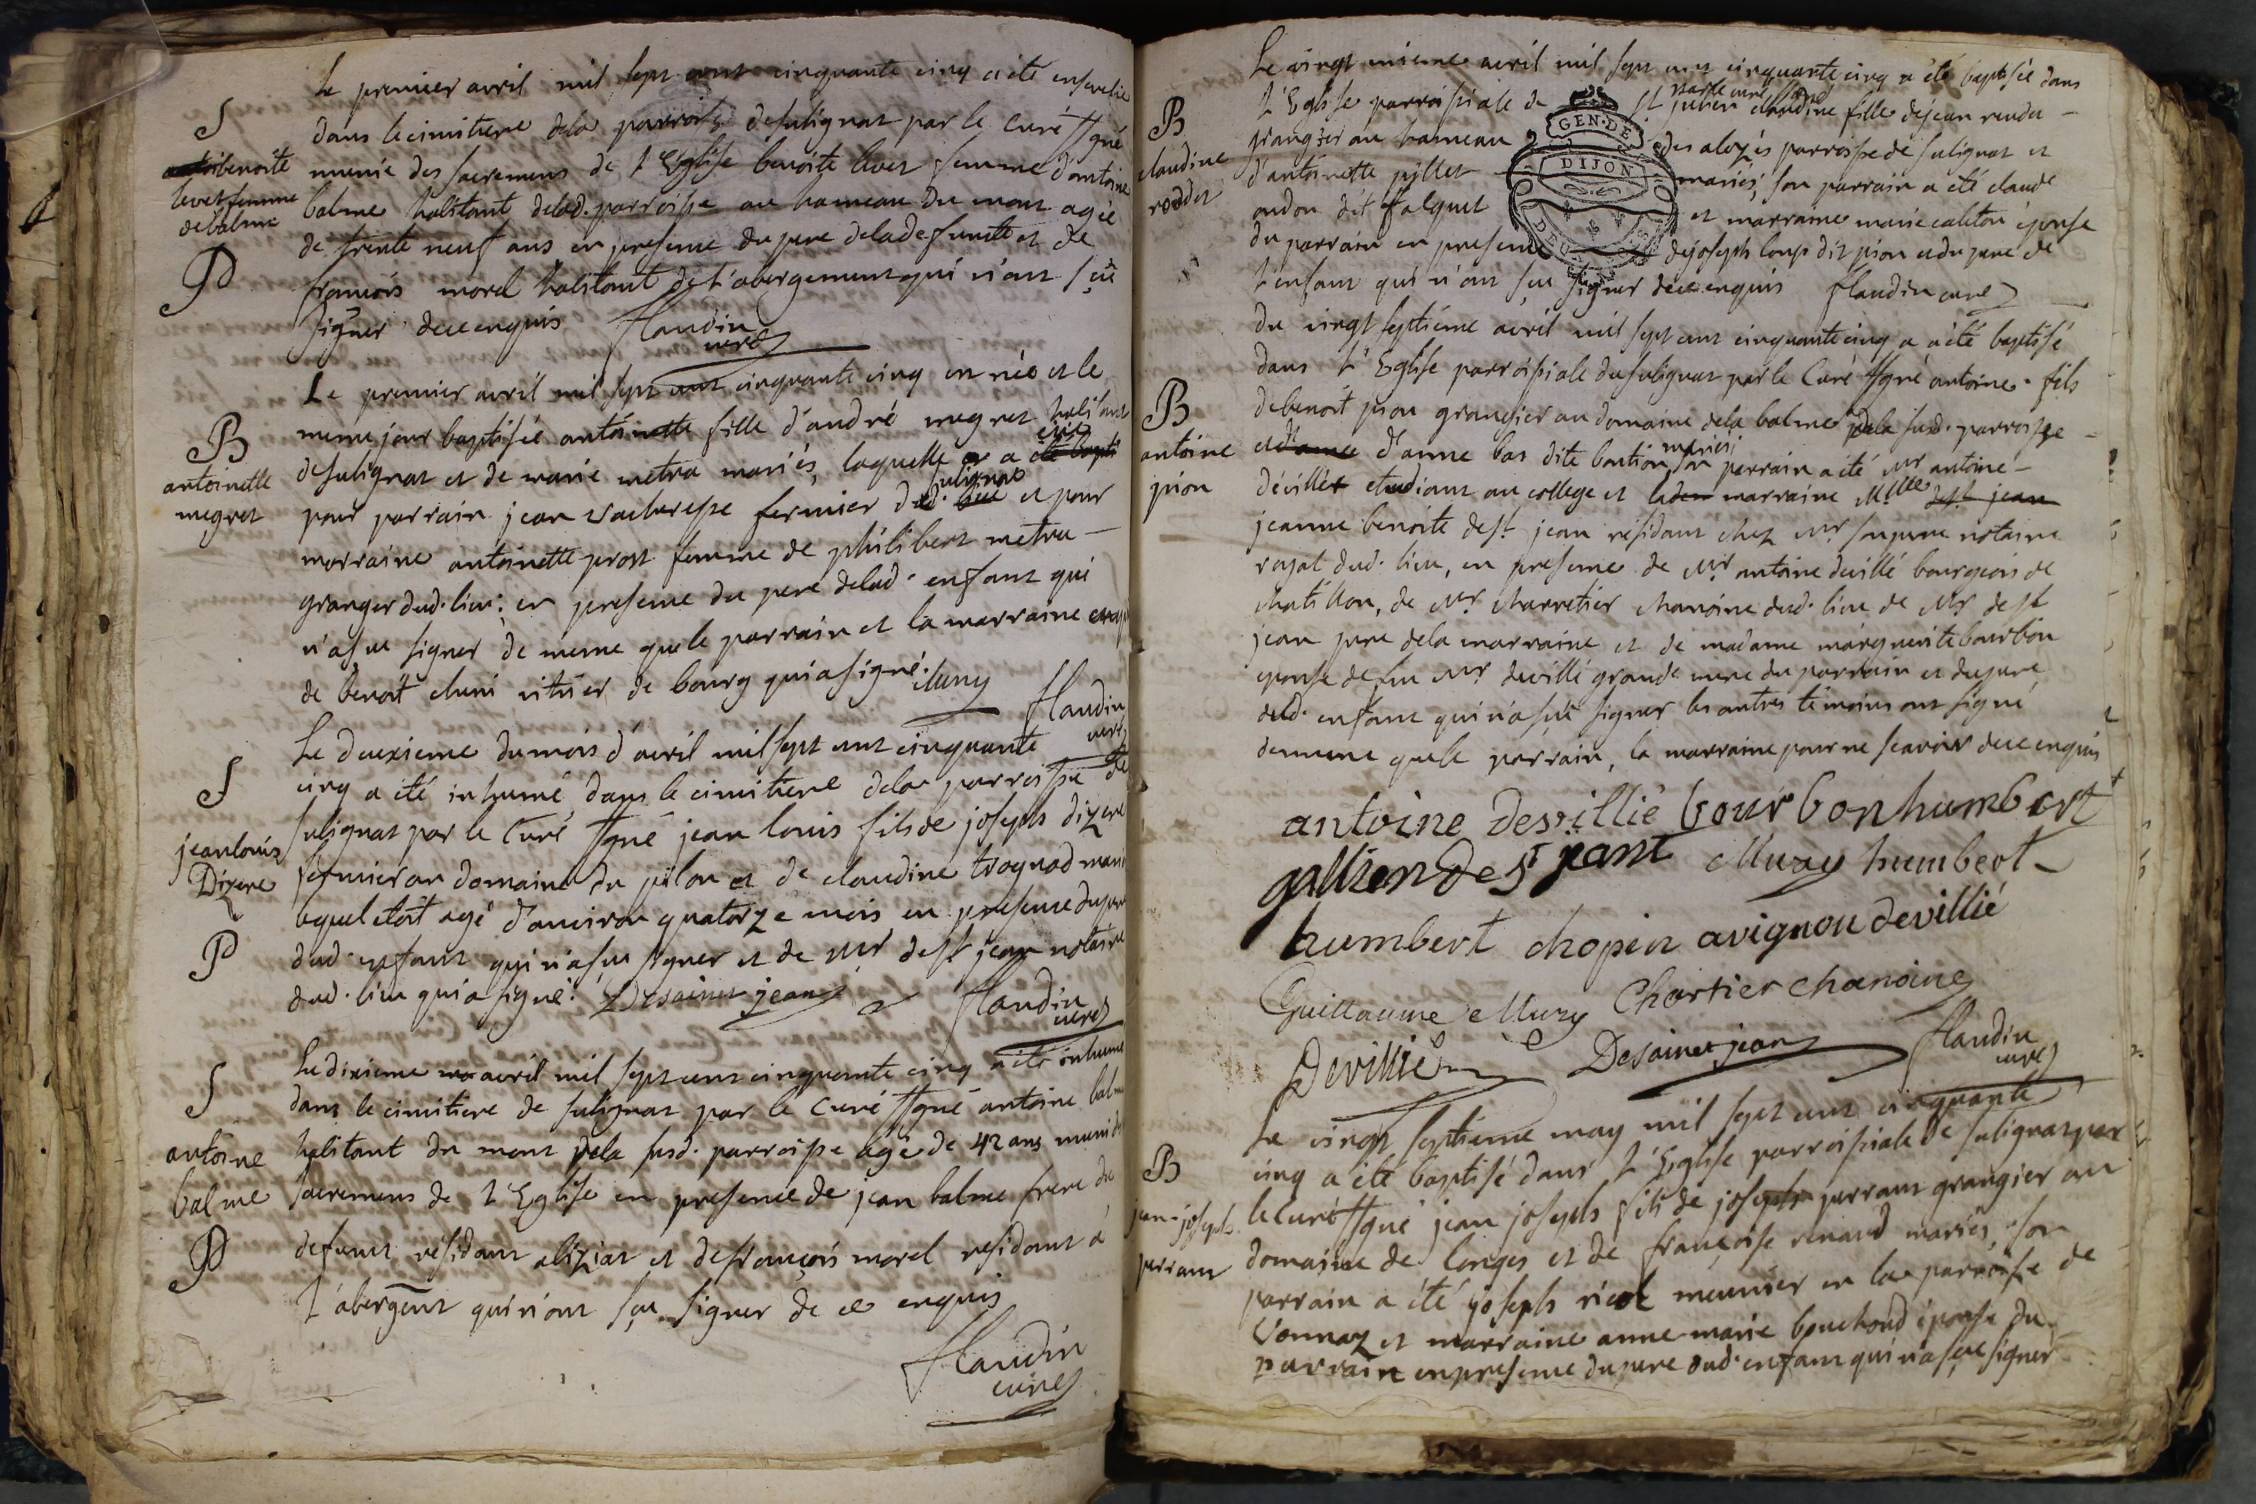 Le premier avril mil sept cent cinquante cinq a été ensevelie
dans le cimitiere dela parroisse desulignat par le curé ssgné
munie des sacremens de l'Eglise benoite livet femme d'antoine
balme habitant delad. parroisse au hameau du mont agée
de trente neuf ans en presence du pere deladefunte et de
françois morel habitant de l'abergement qui n'ont sçu
signer de ce enquis flandin
curé
S
benoite
livet femme
de balme
P
Le premier avril mil sept cent cinquante cinq est née et le
meme jour baptisée antoinette fille d'andré megret habitant
desulignat et de marie metra mariés, laquelle a eue
pour parrain jean vacheresse fermier dud. sulignat et pour
marraine antoinette prost femme de philibert metra
granger dud. lieu; en presence du pere delad. enfant qui
n'a su signer de meme que le parrain et la marraine
de benoît chuni vitrier de bourg qui a signé.
Muny flandin
curé
B
antoinette
megret
Le deuxieme du mois d'avril mil sept cent cinquante
cinq a été inhumé dans le cimitiere dela parroisse de
sulignat par le Curé ssgné jean louis fils de joseph dizere
fermier au domaine du pilon et de claudine troquad
lequel etoit agé d'environ quatorze mois en presence du pere
dud. enfant qui n'a su signer et de Mr de st jean notaire
dud. lieu qui a signé. Desaint jean flandin
curé
S
jean louis
Dizere
P
Le dixieme avril mil sept cent cinquante cinq a été inhumé
dans le cimitiere de sulignat par le Curé ssgné antoine balme
habitant du mont dela susd. parroisse agé de 42 ans muni des
sacremens de l'Eglise en presence de jean balme frere du
defunt résidant a liziat et de françois morel residant à
l'abergent qui n'ont sçu signer de ce enquis
flandin
curé
S
antoine
balme
P
Le vingt unieme avril mil sept cent cinquante cinq a été baptisée dans
l'Eglise parroissiale de st julien claudine fille de jean
grangier au hameau des alozés parroisse de sulignat et
d'antoinette pillet mariés, son parrain a été claude
oudon dit falquet et marraine marie caliton épouse
du parrain en presence de joseph loup dit pion et du pere de
l'enfant qui n'ont sçu signer de ce enquis flandin curé
B
claudine
GEN. DE
DIJON
DEUX
Du vingt septième avril mil sept cent cinquante cinq a été baptisé
dans l'Eglise parroissiale de sulignat par le Curé ssgné antoine fils
de benoît pion grangier au domaine dela balme dela susd. parroisse
et d'anne bas dite bontion mariés, son parrain a été Mr antoine
déville etudiant au college et marraine Mlle
jeanne benoite de st jean résidant chez Mr son pere notaire
royal dud. lieu, en presence de Mr antoine devillé bourgeois de
chatillon, de Mr charretier chanoine dud. lieu de Mr de st
jean pere dela marraine et de madame marguerite bourbon
epouse de feu Mr devillé grande mere du parrain et du pere
dud. enfant qui n'a sçu signer les autres témoins ont signé
de meme que le parrain, la marraine pour ne scavoir de ce enquis
B
antoine
pion
antoine devillié bourbon humbert
gallien de st jant Muzy humbert
humbert chopin avignon devillié
Guillaume Muzy Chartier chanoine
Devillié Desaint jean flandin
curé
Le vingt septieme may mil sept cent cinquante
cinq a été baptisé dans l'Eglise parroissiale de sulignat par
le curé ssgné jean joseph fils de joseph perrant grangier au
domaine de longes et de françoise renaud mariés, son
parrain a été joseph meunier en la parroisse de
Vonnaz et marraine anne marie bouchoud épouse du
parrain en presence du pere dud. enfant qui n'a sçu signer
B
jean-joseph
perrant